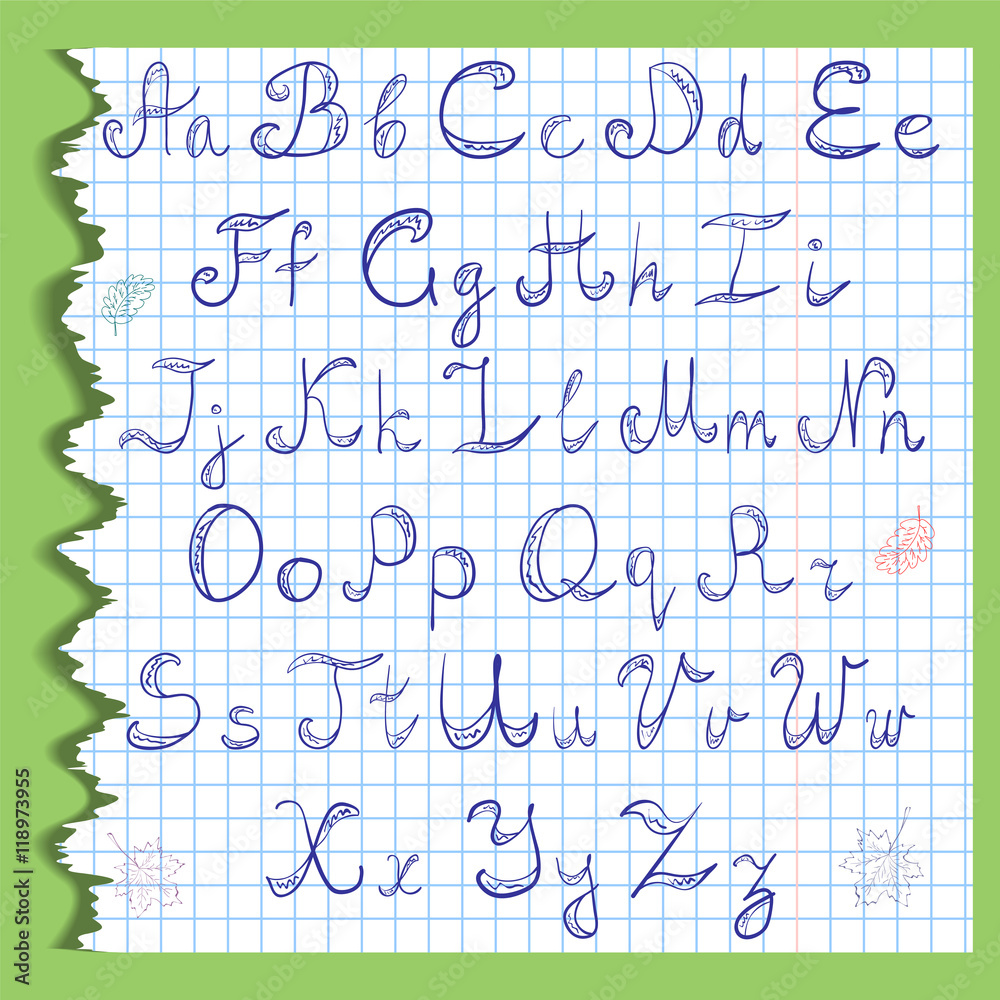 Aa Bb Cc Dd Ee
Ff Gg Hh Ii
Jj Kk Ll Mm Nn
Oo Pp Qq Rr
Ss Tt Uu Vv Ww
Xx Yy Zz
Adobe Stock | #118973955